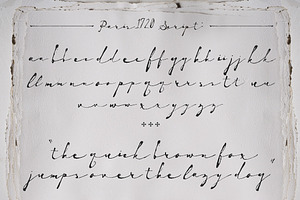 Paris 1720 Script
aabbccddeeffgghhiijjkk
llmmnnooppqqrrsstt uu
vvwwxxyyzz
"the quick brown fox
jumps over the lazy dog"